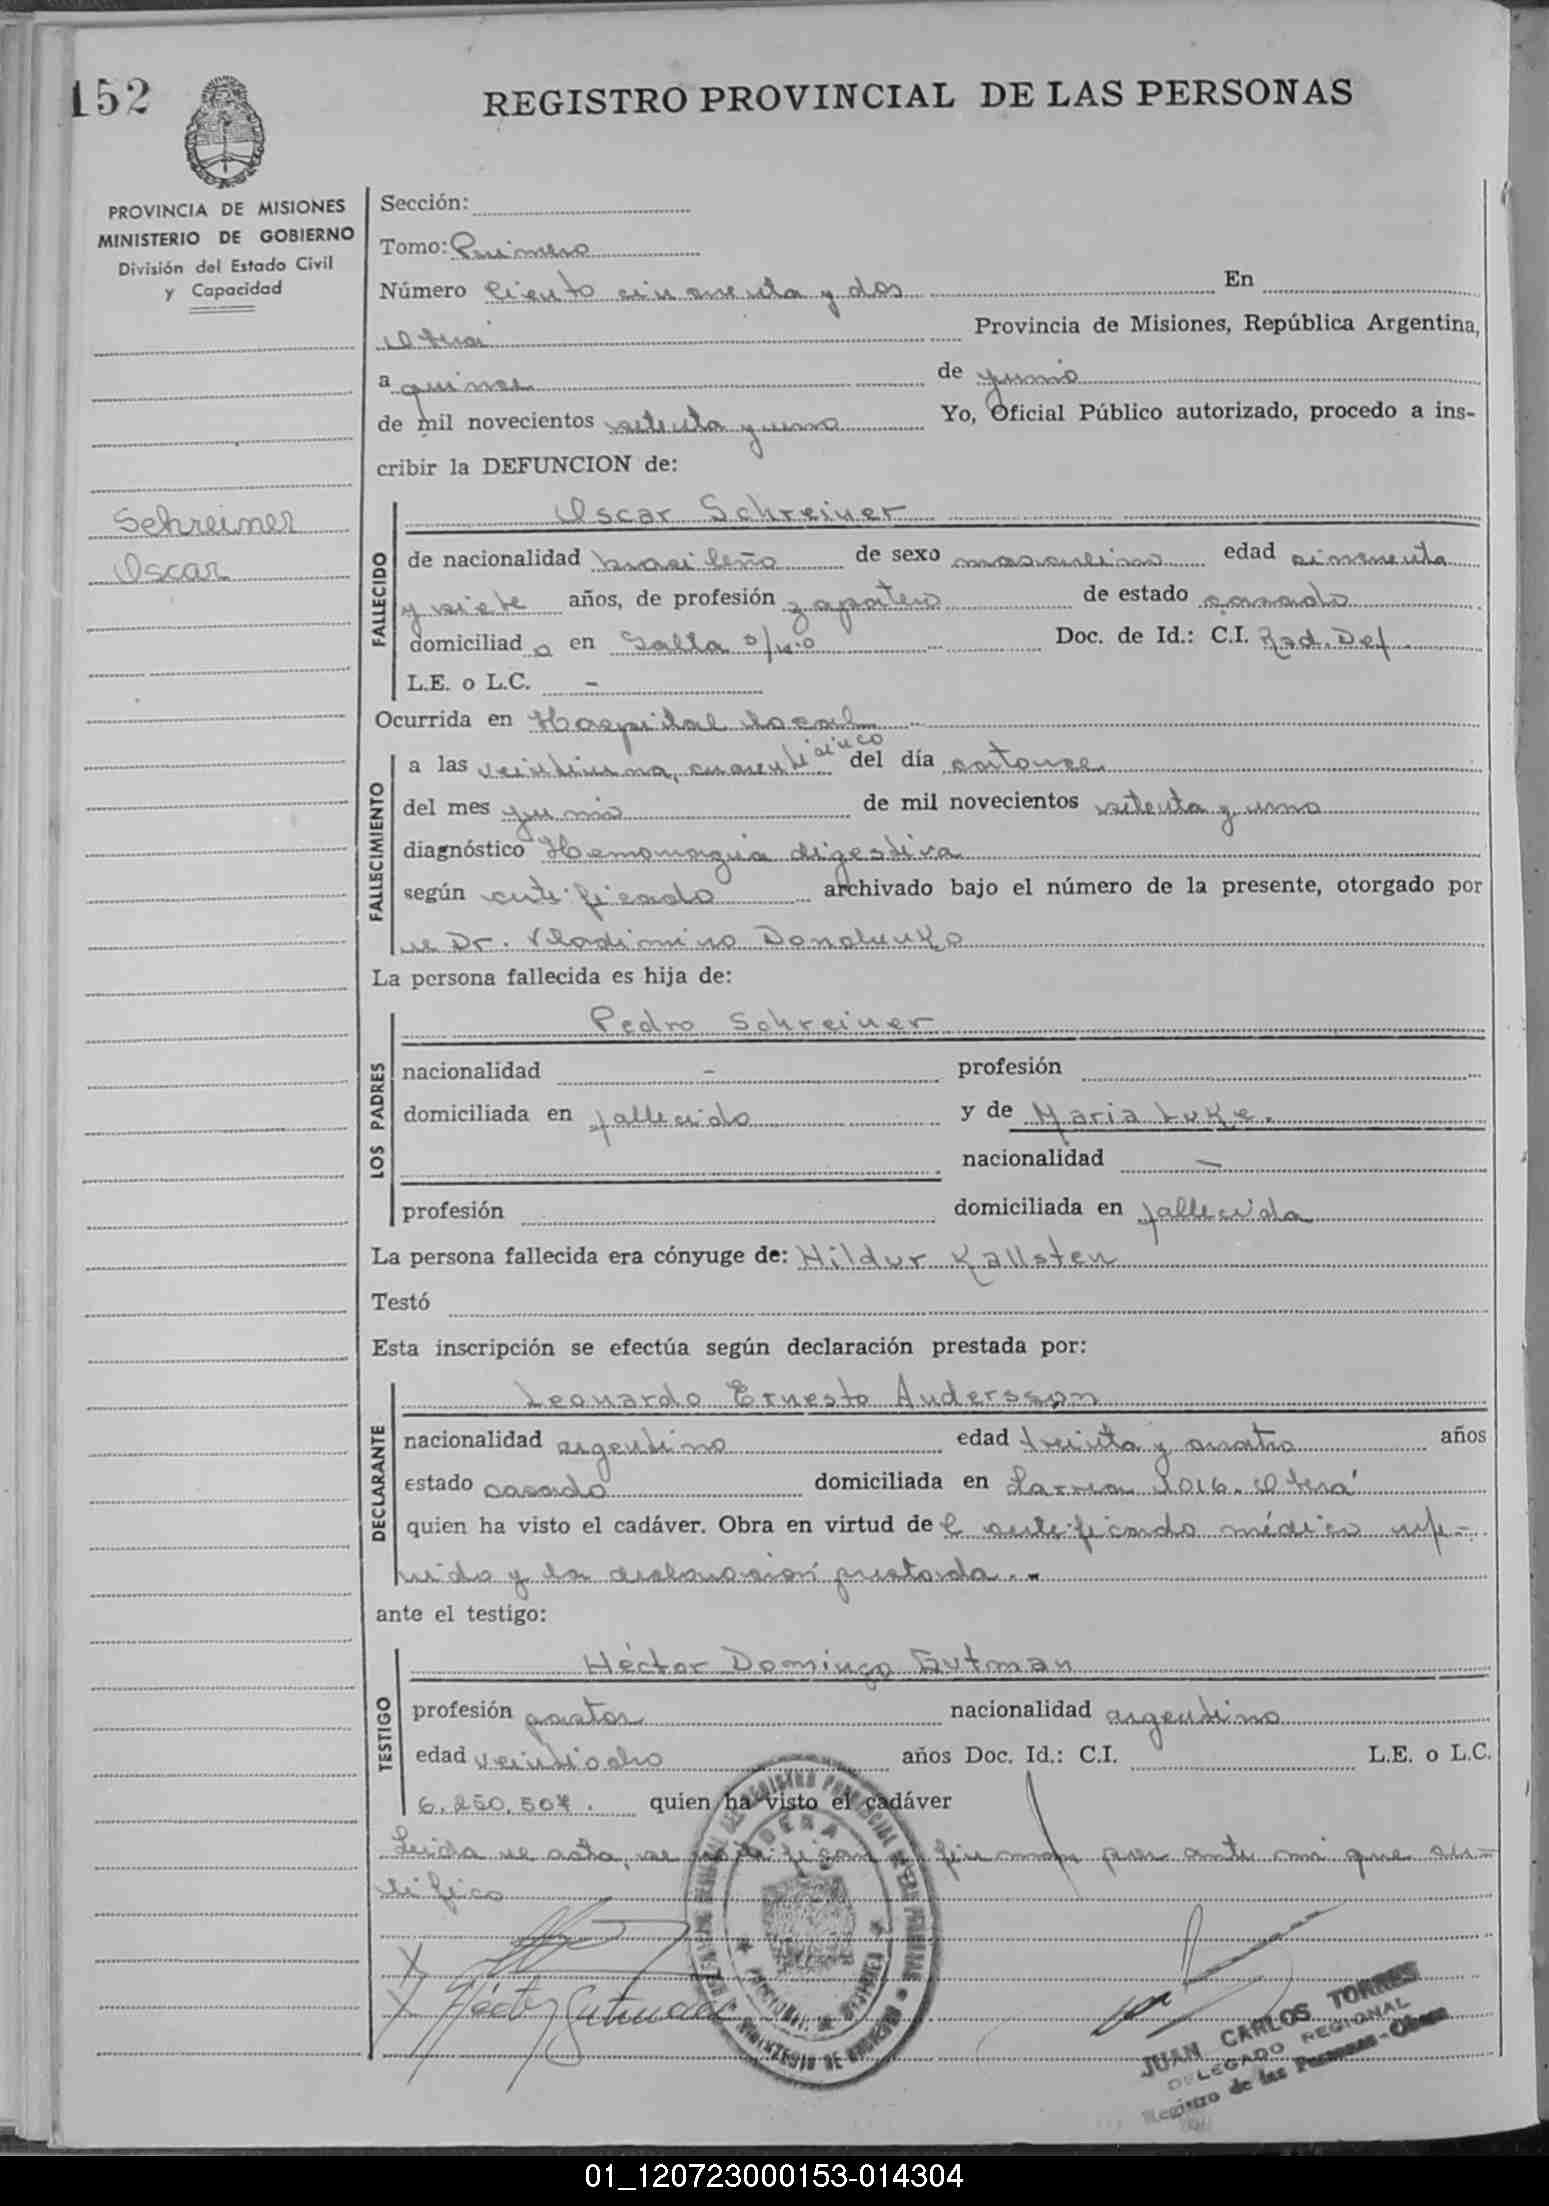 152
REGISTRO PROVINCIAL DE LAS PERSONAS
PROVINCIA DE MISIONES
MINISTERIO DE GOBIERNO
División del Estado Civil
y Capacidad
Schreiner
Oscar
Sección:
Tomo: Primero
Número Ciento cincuenta y dos En
Oberá Provincia de Misiones, República Argentina,
a quince de junio
de mil novecientos setenta y uno Yo, Oficial Público autorizado, procedo a ins-
cribir la DEFUNCION de:
FALLECIDO
Oscar Schreiner
de nacionalidad brasileño de sexo masculino edad cincuenta
y siete años, de profesión zapatero de estado casado
domiciliad o en Salta s/n.o Doc. de Id.: C.I. Rad. Def
L.E. o L.C. -
Ocurrida en Hospital local
FALLECIMIENTO
a las veintiuna, cuarenticinco del día catorce
del mes junio de mil novecientos setenta y uno
diagnóstico Hemorragia digestiva
según certificado archivado bajo el número de la presente, otorgado por
el Dr. Vladimiro
La persona fallecida es hija de:
LOS PADRES
Pedro Schreiner
nacionalidad - profesión
domiciliada en fallecido y de Maria Luke.
nacionalidad -
profesión domiciliada en fallecida
La persona fallecida era cónyuge de: Hildur Kallsten
Testó
Esta inscripción se efectúa según declaración prestada por:
DECLARANTE
Leonardo Ernesto Andersson
nacionalidad argentino edad treinta y cuatro años
estado casado domiciliada en Larrea 1016. Oberá
quien ha visto el cadáver. Obra en virtud de l certificado médico refe-
rido y la declaración prestada..-
ante el testigo:
TESTIGO
Héctor Domingo Gutman
profesión pastor nacionalidad argentino
edad veintiocho años Doc. Id.: C.I. L.E. o L.C.
6.250.507. quien ha visto el cadáver
Leida el acta, se ratifican firman por ante mi que cer-
tifico
X
X Héctor Gutman
OBERA
JUAN CARLOS TORRES
DELEGADO REGIONAL
Registro de las Personas - Obera
01_120723000153-014304